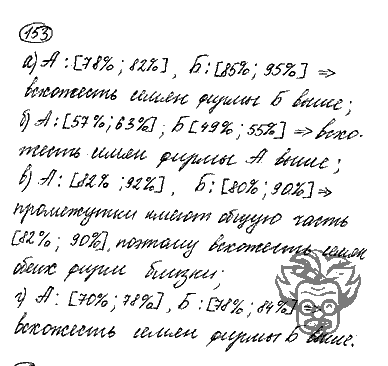 153
а) А: [78%; 82%], Б: [85%; 95%] ⇒
всхожесть семян фирмы Б выше;
б) А: [57%; 63%]; Б [49%; 55%] ⇒ всхо-
жесть семян фирмы А выше;
в) А: [82%; 92%], Б: [80%; 90%] ⇒
промежутки имеют общую часть
[82%; 90%], поэтому всхожесть семян
обеих фирм близки;
г) А: [70%; 78%], Б: [78%; 84%] ⇒
всхожесть семян фирмы Б выше.